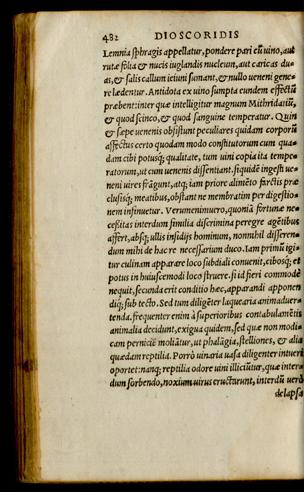 482 DIOSCORIDIS
Lemnia sphragis appellatur, pondere pari cũ uino, aut
rutæ folia & nucis iuglandis nucleum, aut caricas du-
as, & salis callum ieiuni sumant, & nullo ueneni gene-
re lædentur. Antidota ex uino sumpta eundem effectũ
præbent: inter quæ intelligitur magnum Mithridatiũ,
& quod scinco, & quod sanguine temperatur. Quin
& sæpe uenenis obsistunt peculiares quidam corporũ
affectus certo quodam modo constitutorum cum qua-
dam cibi potusq; qualitate, tum uini copia ita tempe-
ratorum, ut cum uenenis dissentiant. siquidē ingesti ue-
neni uires frãgunt, atq; iam priore alimēto farctis præ
clusisq; meatibus, obstant ne membratim per digestio-
nem insinuetur. Verumenimuero, quoniã fortunæ ne-
cessitas interdum similia discrimina peregre agētibus
affert, absq; ullis insidijs hominum, nonnihil disseren-
dum mihi de hac re necessarium duco. Iam primũ igi-
tur culinam apparare loco subdiali conuenit, cibosq; et
potus in huiuscemodi loco struere. si id fieri commodè
nequit, secunda erit conditio hæc, apparandi apponen
diq; sub tecto. Sed tum diligēter laquearia animaduer-
tenda. frequenter enim à superioribus contabulamētis
animalia decidunt, exigua quidem, sed quæ non modi-
cam perniciē moliãtur, ut phalãgia, stelliones, & alia
quædam reptilia. Porrò uinaria uasa diligenter intueri
oportet: nanq; reptilia odore uini illiciũtur, quæ inter-
dum sorbendo, noxium uirus eructarunt, interdũ uerò
delapsa